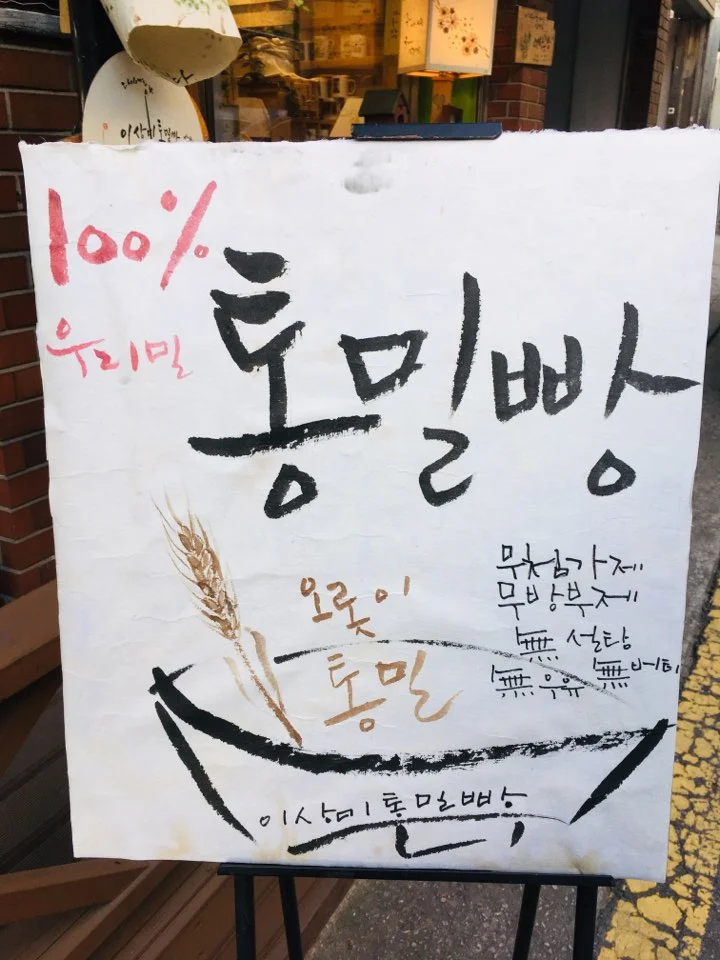 이상미통밀빵
100%
우리밀
통밀빵
무첨가제
무방부제
無 설탕
無 우유 無 버터
오롯이
통밀
이상미통밀빵